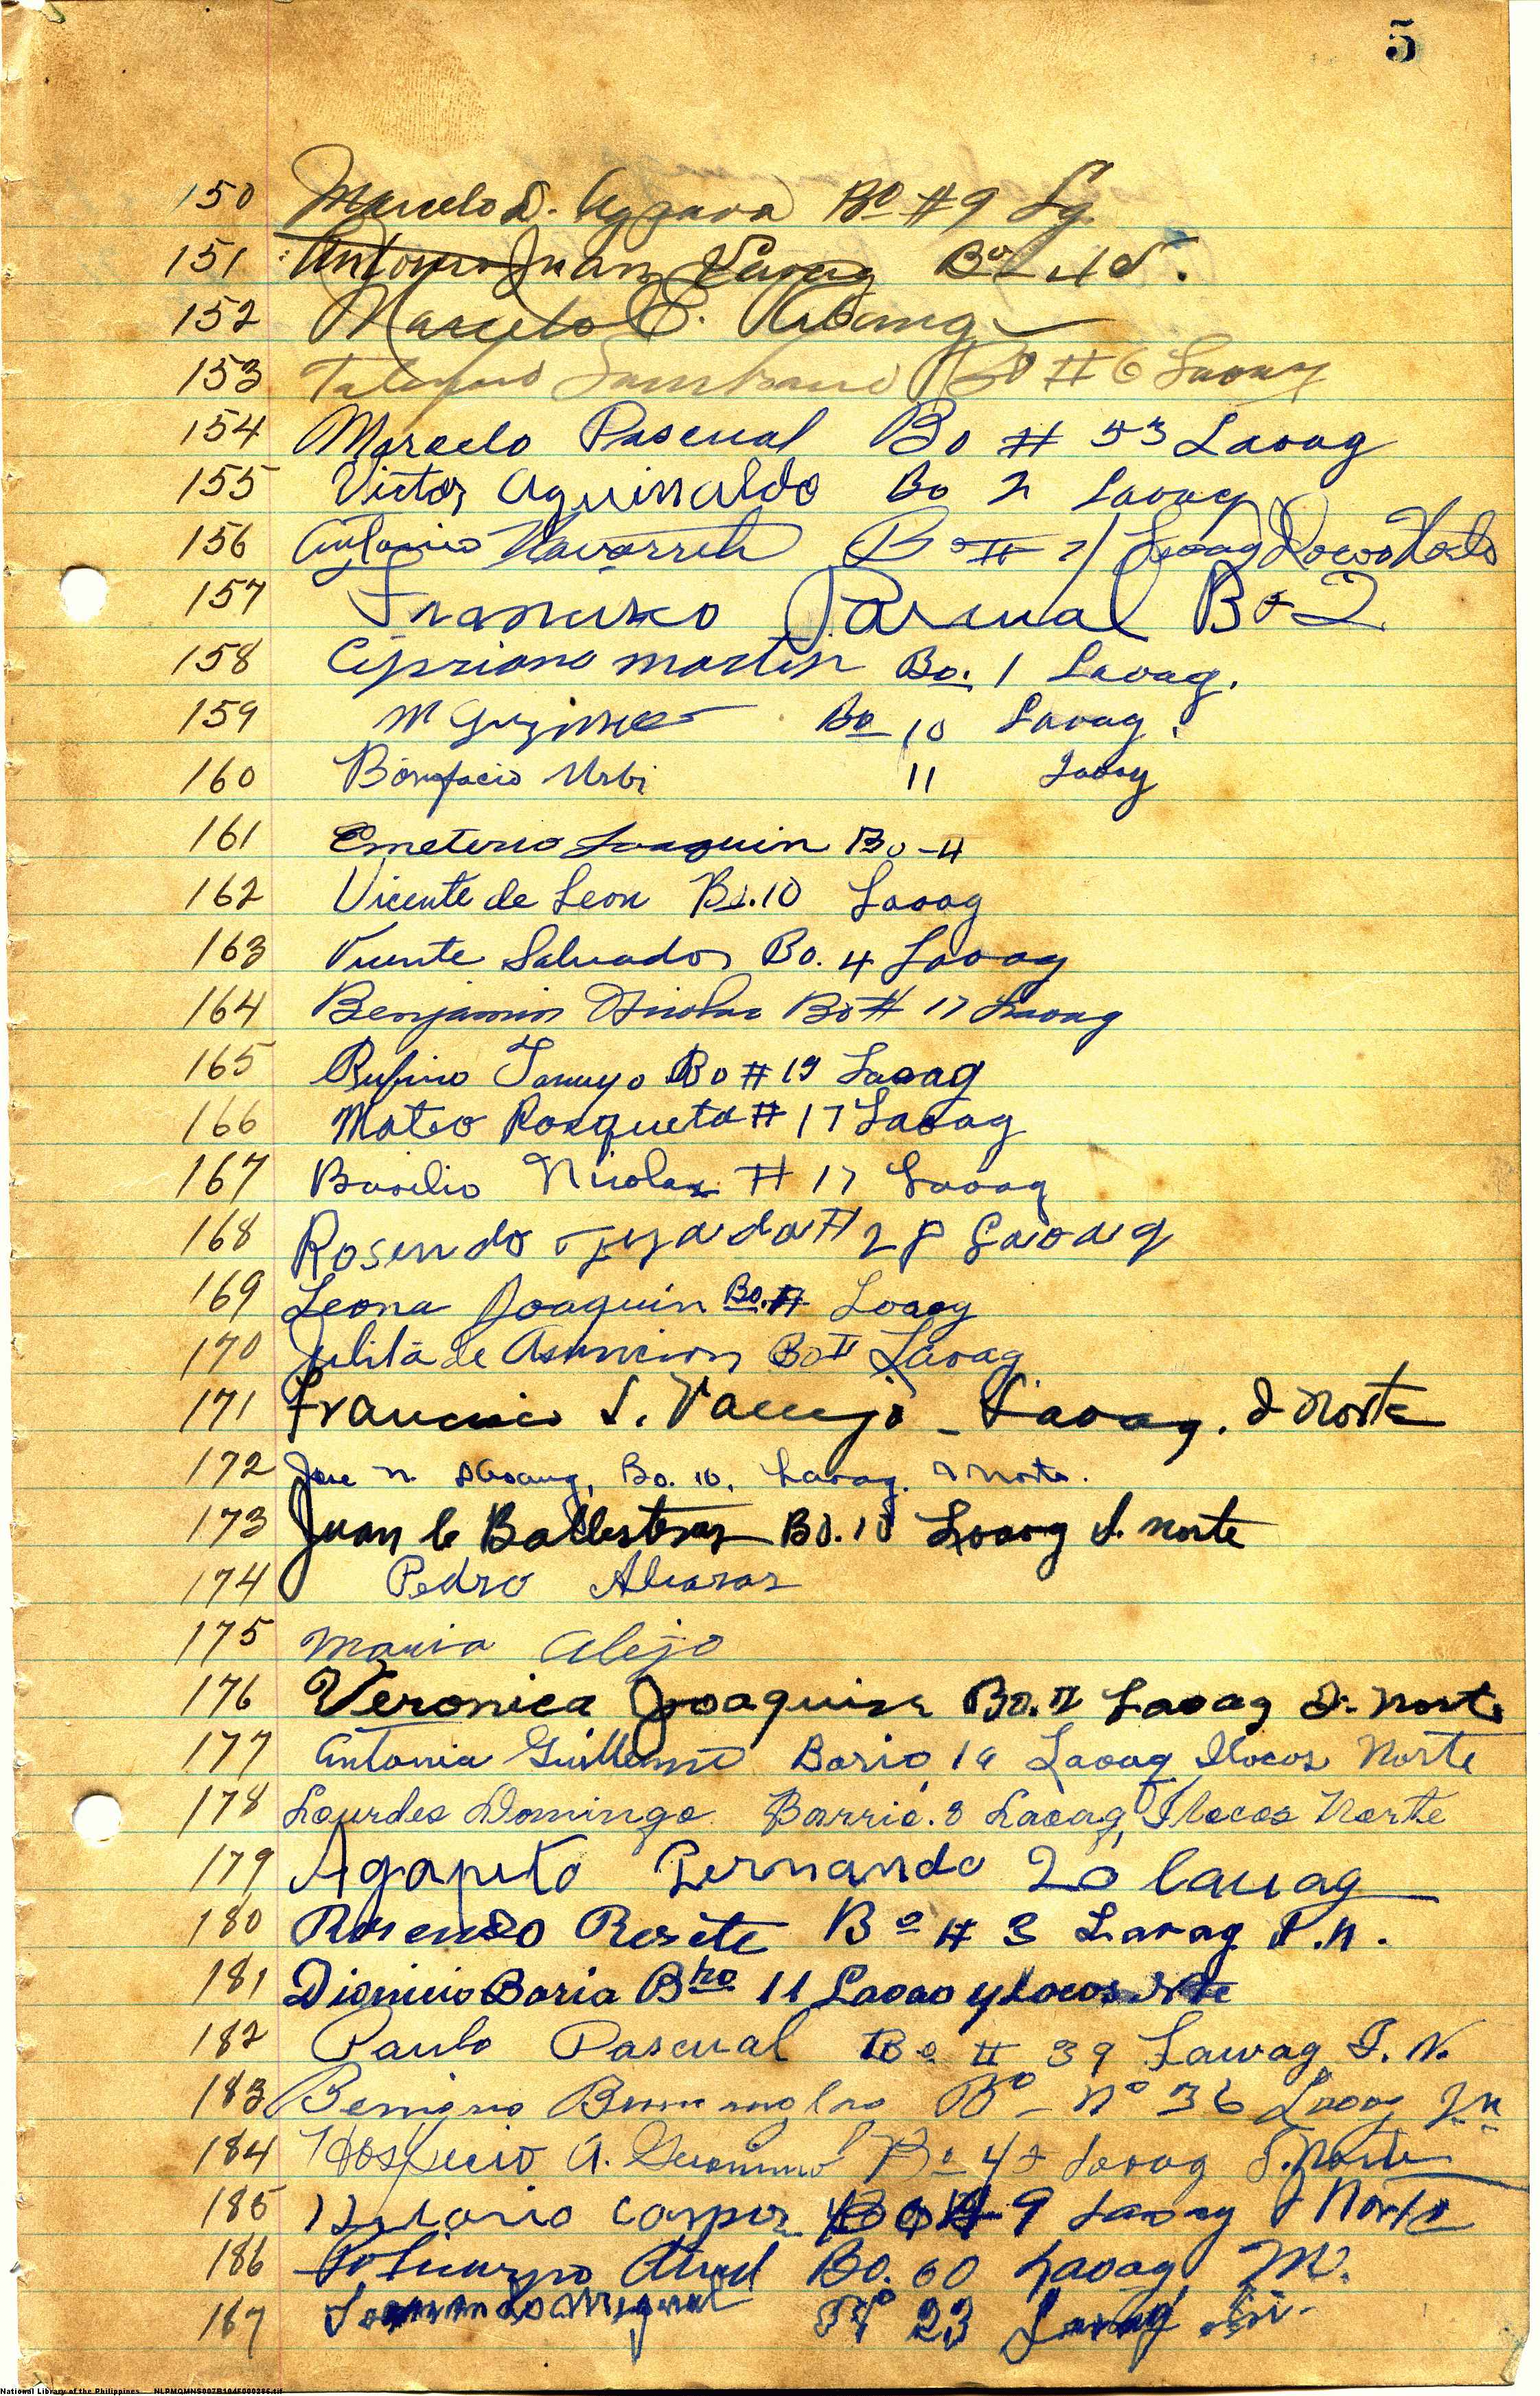 5
150 Marcelo D. Bº #9 Lg.
151 Antonio Juan Laoag Bº
152 Marcelo E.
153 Bo #6 Laoag
154 Marcelo Pascual Bo # 53 Laoag
155 Victor Aguinaldo Bo 2 Laoag
156 Antonio Navarrete Bo # Laoag Ilocos Norte
157 Francisco Pascual Bo 2
158 Cipriano Martin Bo. 1 Laoag.
159 M Bo 10 Laoag.
160 Bonifacio Urbi 11 Laoag
161 Emeterio Joaquin Bo-4
162 Vicente de Leon Bo.10 Laoag
163 Vicente Salvador Bo. 4 Laoag
164 Benjamin Nicolas Bo # 17 Laoag
165 Rufino Tamayo Bo # 19 Laoag
166 Mateo Rosqueta # 17 Laoag
167 Basilio Nicolas # 17 Laoag
168 Rosendo # 28 Laoag
169 Leona Joaquin Bo. Laoag
170 Julita de Asuncion Bo II Laoag
171 Francisco S. Vallejo - Laoag. I Norte
172 Jose N. Bo. 10, Laoag. I Norte.
173 Juan Ballesteros Bo. 10 Laoag I. norte
174 Pedro Alcaraz
175 Maria Alejo
176 Veronica Joaquin Bo. II Laoag I. Norte
177 Antonia Guillermo Bario 19 Laoag Ilocos Norte
178 Lourdes Domingo Barrio. 8 Laoag, Ilocos Norte
179 Agapito Fernando 20 lauag
180 Rosendo Bº # 3 Laoag I.N.
181 Dionicio Baria Bro 11 Laoag ylocos Nte
182 Paulo Pascual Bo. # 39 Lawag I. N.
183 Benigno Bº - Nº 36 Laoag I.N.
184 Hospicio A. Geronimo Bo Laoag I. Norte
185 Hilario Bo # 9 Laoag I Norte
186 Policarpo Bo. 60 Laoag IN.
187 23 Laoag
National Library of the Philippines